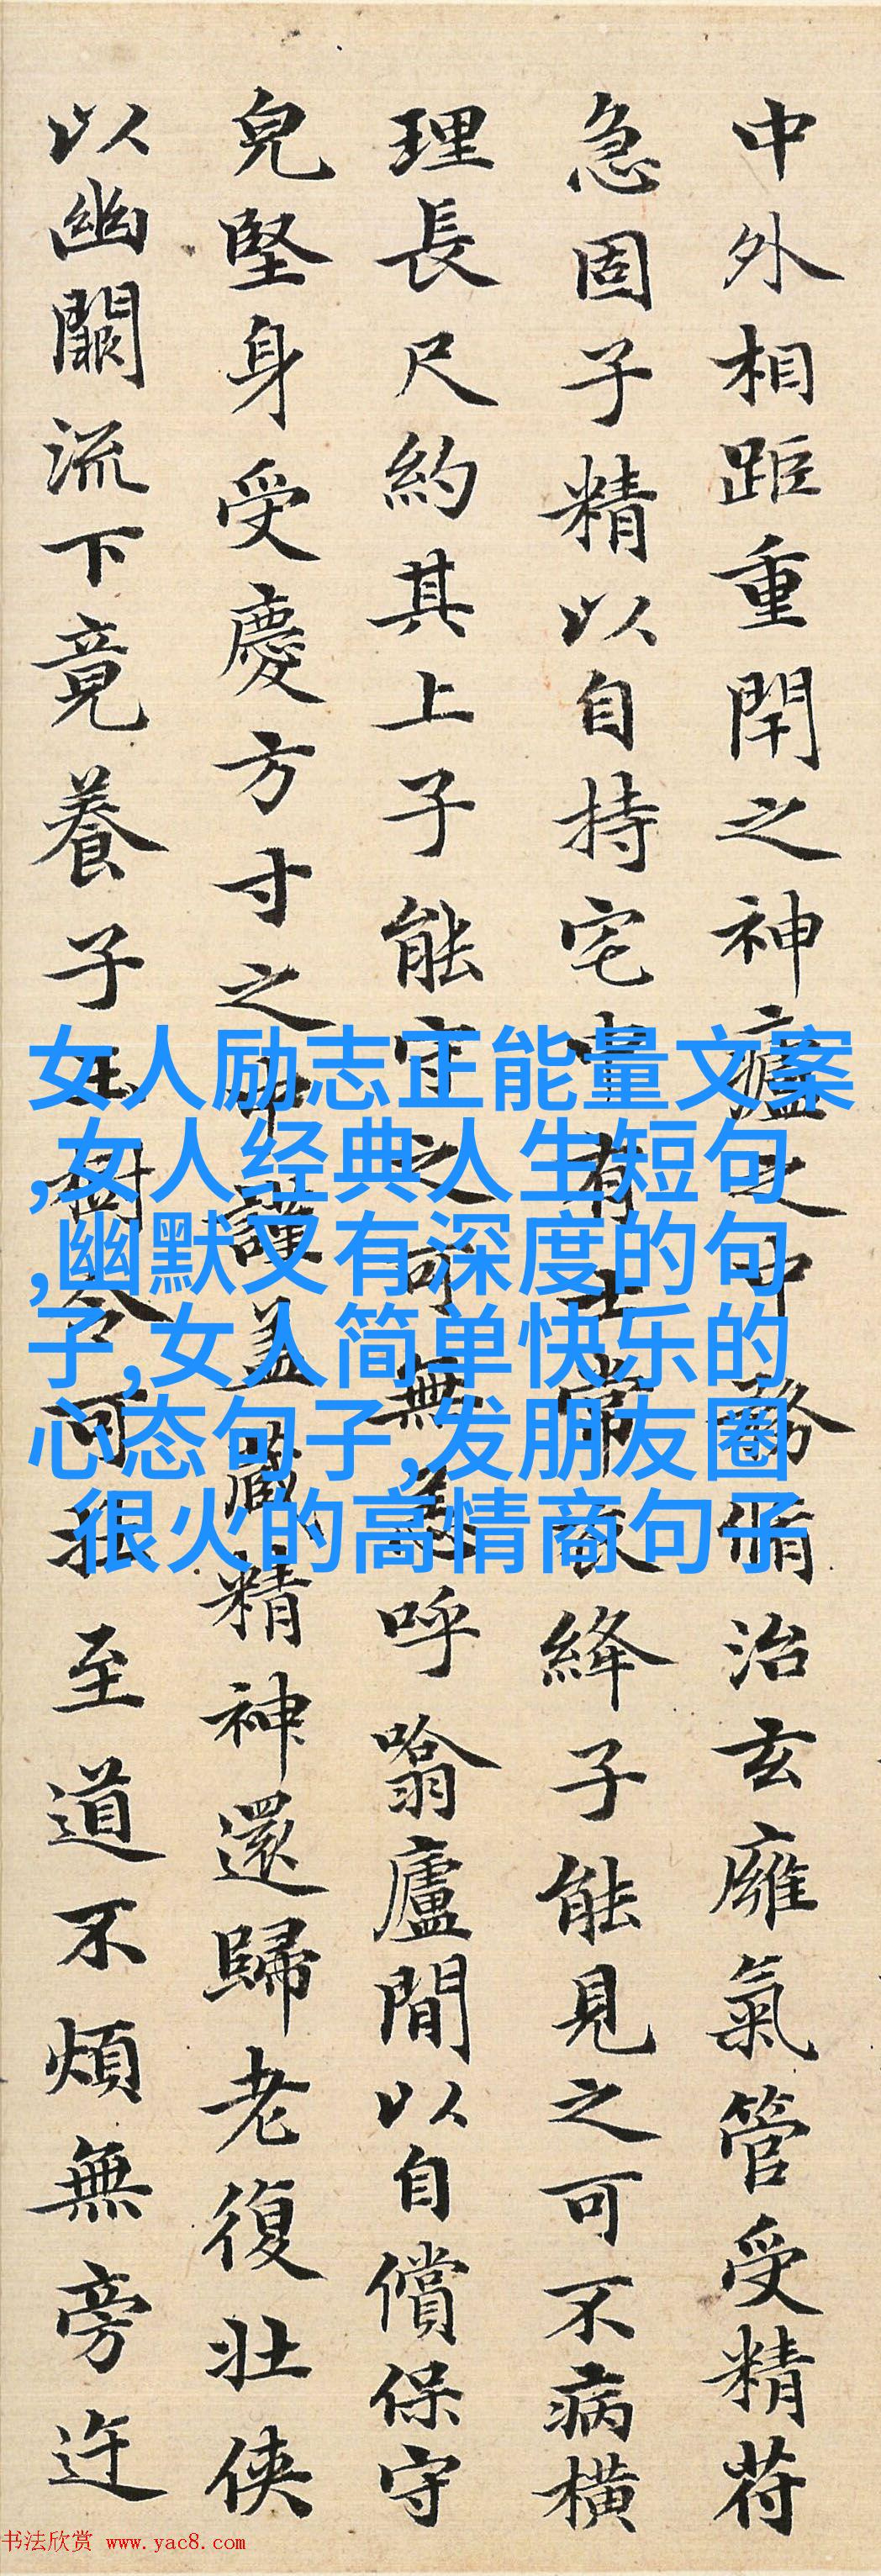 中外相距重閇之神廬之中務脩治玄廱氣管受精苻
急固子精以自持宅中有士常衣絳子能見之可不病橫
理長尺約其上子能守之可無恙呼噏廬間以自償保守
皃堅身受慶方寸之中謹盖藏精神還歸老復壯俠
以幽闕流下竟養子玉樹令可杖至道不煩無旁迕
女人励志正能量文案
,女人经典人生短句
,幽默又有深度的句
子,女人简单快乐的
心态句子,发朋友圈
很火的高情商句子
书法欣赏 www.yac8.com